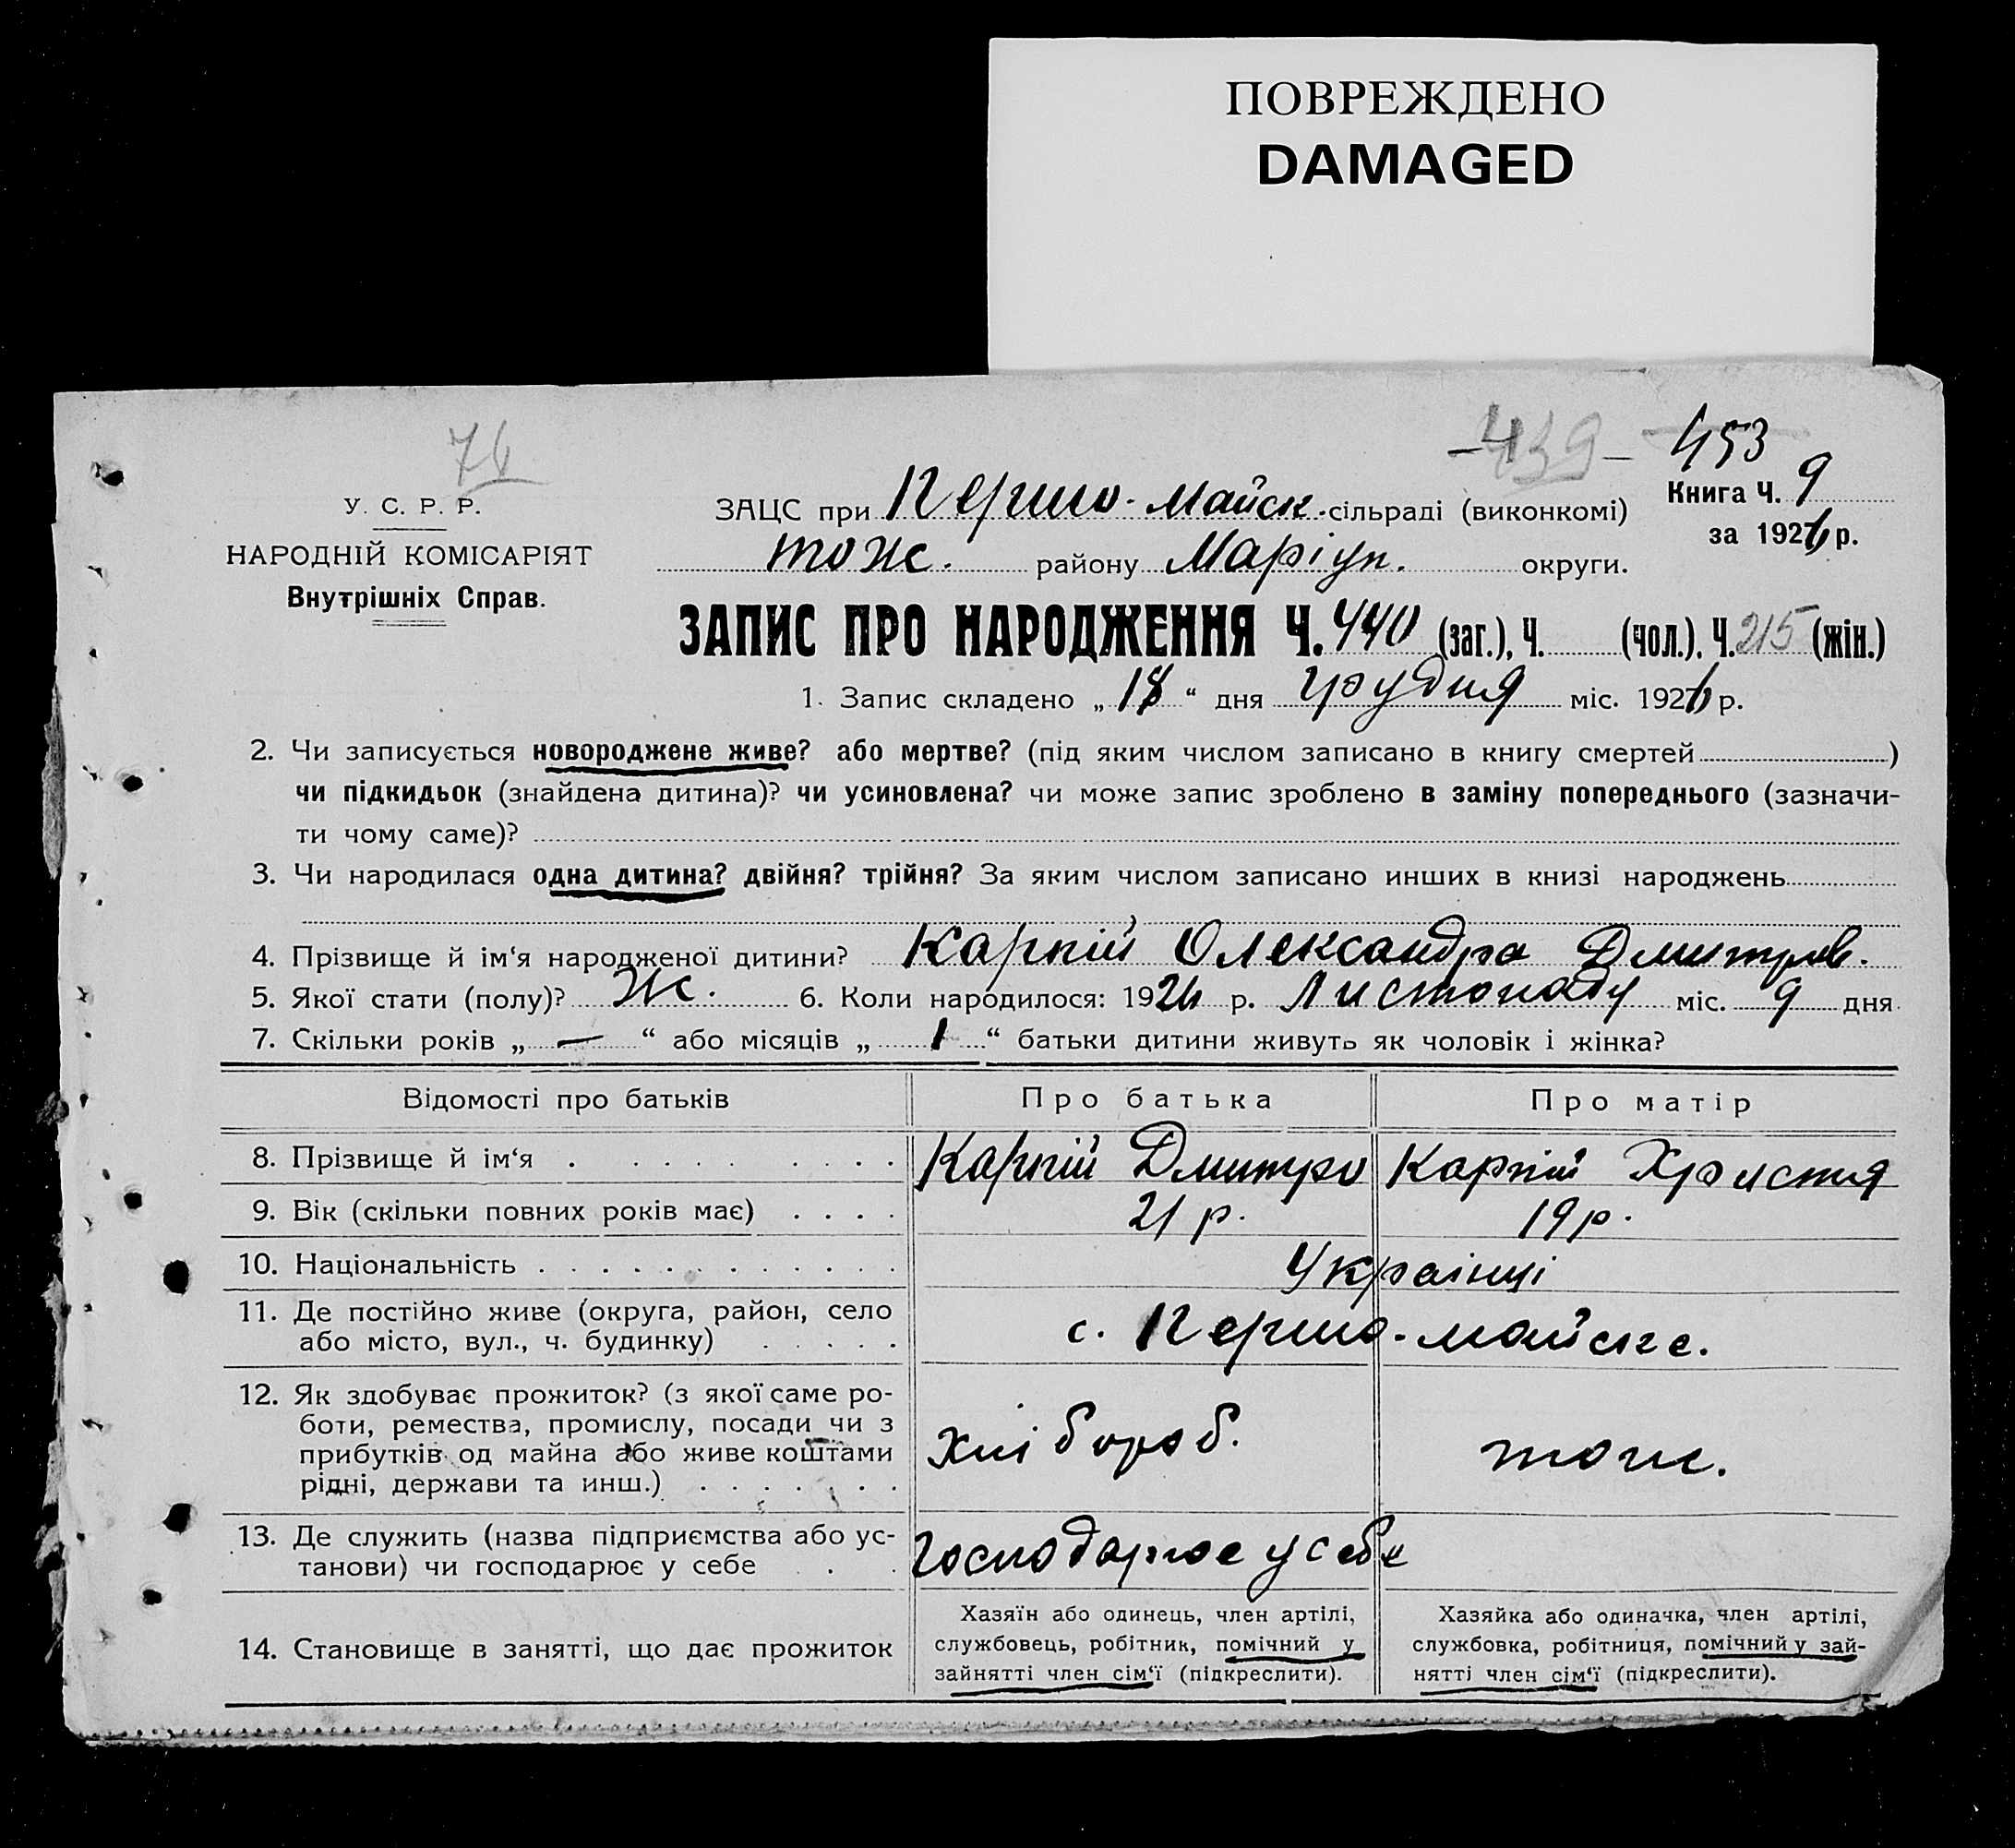 ПОВРЕЖДЕНО
DAMAGED
74
439 — 453
У. С. Р. Р.
НАРОДНІЙ КОМІСАРІЯТ
Внутрішніх Справ.
ЗАЦС при Першо-Майск. сільраді (виконкомі)
Книга Ч. 9
за 1926 р.
тож. району Маріуп. округи.
ЗАПИС ПРО НАРОДЖЕННЯ Ч. 440 (заг.), Ч. (чол.), Ч. 215 (жін.)
1. Запис складено „ 18 “ дня Грудня міс. 1926 р.
2. Чи записується новороджене живе? або мертве? (під яким числом записано в книгу смертей )
чи підкидьок (знайдена дитина)? чи усиновлена? чи може запис зроблено в заміну попереднього (зазначи-
ти чому саме)?
3. Чи народилася одна дитина? двійня? трійня? За яким числом записано инших в книзі народжень
4. Прізвище й ім‘я народженої дитини? Карпій Олександра Дмитров.
5. Якої стати (полу)? Ж. 6. Коли народилося: 1926 р. Листопаду міс. 9 дня
7. Скільки років „ — “ або місяців „ 1 “ батьки дитини живуть як чоловік і жінка?
Відомості про батьків Про батька Про матір
8. Прізвище й ім‘я Карпій Дмитро Карпій Христия
9. Вік (скільки повних років має) 21 р. 19 р.
10. Національність Українці
11. Де постійно живе (округа, район, село
або місто, вул., ч. будинку) с. Першо-майське.
12. Як здобуває прожиток? (з якої саме ро-
боти, ремества, промислу, посади чи з
прибутків од майна або живе коштами
рідні, держави та инш.) Хлібороб. тож.
13. Де служить (назва підприємства або ус-
танови) чи господарює у себе Господарює у себе
14. Становище в занятті, що дає прожиток
Хазяїн або одинець, член артілі,
службовець, робітник, помічний у
зайнятті член сім‘ї (підкреслити).
Хазяйка або одиначка, член артілі,
службовка, робітниця, помічний у зай-
нятті член сім‘ї (підкреслити).